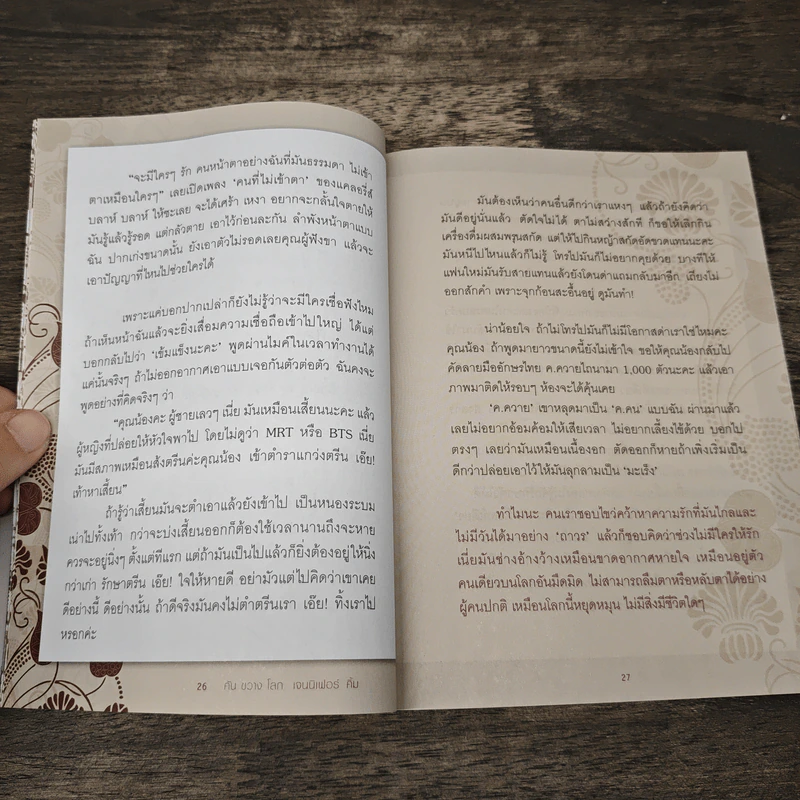 "จะมีใครๆ รัก คนหน้าตาอย่างฉันที่มันธรรมดา ไม่เข้า
ตาเหมือนใครๆ" เลยเปิดเพลง 'คนที่ไม่เข้าตา' ของแคลอรี่ส์
บลาห์ บลาห์ ให้ซะเลย จะได้เศร้า เหงา อยากจะกลั้นใจตายให้
มันรู้แล้วรู้รอด แต่กลัวตาย เอาไว้ก่อนละกัน ลำพังหน้าตาแบบ
ฉัน ปากเก่งขนาดนั้น ยังเอาตัวไม่รอดเลยคุณผู้ฟังขา แล้วจะ
เอาปัญญาที่ไหนไปช่วยใครได้
เพราะแค่บอกปากเปล่าก็ยังไม่รู้ว่าจะมีใครเชื่อฟังไหม
ถ้าเห็นหน้าฉันแล้วจะยิ่งเสื่อมความเชื่อถือเข้าไปใหญ่ ได้แต่
บอกกลับไปว่า 'เข้มแข็งนะคะ' พูดผ่านไมค์ในเวลาทำงานได้
แค่นั้นจริงๆ ถ้าไม่ออกอากาศเอาแบบเจอกันตัวต่อตัว ฉันคงจะ
พูดอย่างที่คิดจริงๆ ว่า
"คุณน้องคะ ผู้ชายเลวๆ เนี่ย มันเหมือนเสี้ยนนะคะ แล้ว
ผู้หญิงที่ปล่อยให้หัวใจพาไป โดยไม่ดูว่า MRT หรือ BTS เนี่ย
มันมีสภาพเหมือนส้งตรีนค่ะคุณน้อง เข้าตำราแกว่งตรีน เอ๊ย!
เท้าหาเสี้ยน"
ถ้ารู้ว่าเสี้ยนมันจะตำเอาแล้วยังเข้าไป เป็นหนองระบม
เน่าไปทั้งเท้า กว่าจะบ่งเสี้ยนออกก็ต้องใช้เวลานานถึงจะหาย
ควรจะอยู่นิ่งๆ ตั้งแต่ทีแรก แต่ถ้ามันเป็นไปแล้วก็ยิ่งต้องอยู่ให้นิ่ง
กว่าเก่า รักษาตรีน เอ๊ย! ใจให้หายดี อย่ามัวแต่ไปคิดว่าเขาเคย
ดีอย่างนี้ ดีอย่างนั้น ถ้าดีจริงมันคงไม่ตำตรีนเรา เอ๊ย! ทิ้งเราไป
หรอกค่ะ
26 คัน ขวาง โลก เจนนิเฟอร์ คิ้ม
มันต้องเห็นว่าคนอื่นดีกว่าเราแหงๆ แล้วถ้ายังคิดว่า
มันดีอยู่นั่นแล้ว ตัดใจไม่ได้ ตาไม่สว่างสักที ก็ขอให้เลิกกิน
เครื่องดื่มผสมพรุนสกัด แต่ให้ไปกินหญ้าสกัดอัดขวดแทนนะคะ
มันหนีไปไหนแล้วก็ไม่รู้ โทรไปมันก็ไม่อยากคุยด้วย บางทีให้
แฟนใหม่มันรับสายแทนแล้วยังโดนด่าแถมกลับมาอีก เถียงไม่
ออกสักคำ เพราะจุกก้อนสะอื้นอยู่ ดูมันทำ!
น่าน้อยใจ ถ้าไม่โทรไปมันก็ไม่มีโอกาสด่าเราใช่ไหมคะ
คุณน้อง ถ้าพูดมายาวขนาดนี้ยังไม่เข้าใจ ขอให้คุณน้องกลับไป
คัดลายมืออักษรไทย ค.ควายไถนามา 1,000 ตัวนะคะ แล้วเอา
ภาพมาติดให้รอบๆ ห้องจะได้คุ้นเคย
'ค.ควาย' เขาหลุดมาเป็น 'ค.คน' แบบฉัน ผ่านมาแล้ว
เลยไม่อยากอ้อมค้อมให้เสียเวลา ไม่อยากเลี้ยงไข้ด้วย บอกไป
ตรงๆ เลยว่ามันเหมือนเนื้องอก ตัดออกก็หายถ้าเพิ่งเริ่มเป็น
ดีกว่าปล่อยเอาไว้ให้มันลุกลามเป็น 'มะเร็ง'
ทำไมนะ คนเราชอบไขว่คว้าหาความรักที่มันไกลและ
ไม่มีวันได้มาอย่าง 'ถาวร' แล้วก็ชอบคิดว่าช่วงไม่มีใครให้รัก
เนี่ยมันช่างอ้างว้างเหมือนขาดอากาศหายใจ เหมือนอยู่ตัว
คนเดียวบนโลกอันมืดมิด ไม่สามารถลืมตาหรือหลับตาได้อย่าง
ผู้คนปกติ เหมือนโลกนี้หยุดหมุน ไม่มีสิ่งมีชีวิตใดๆ
27